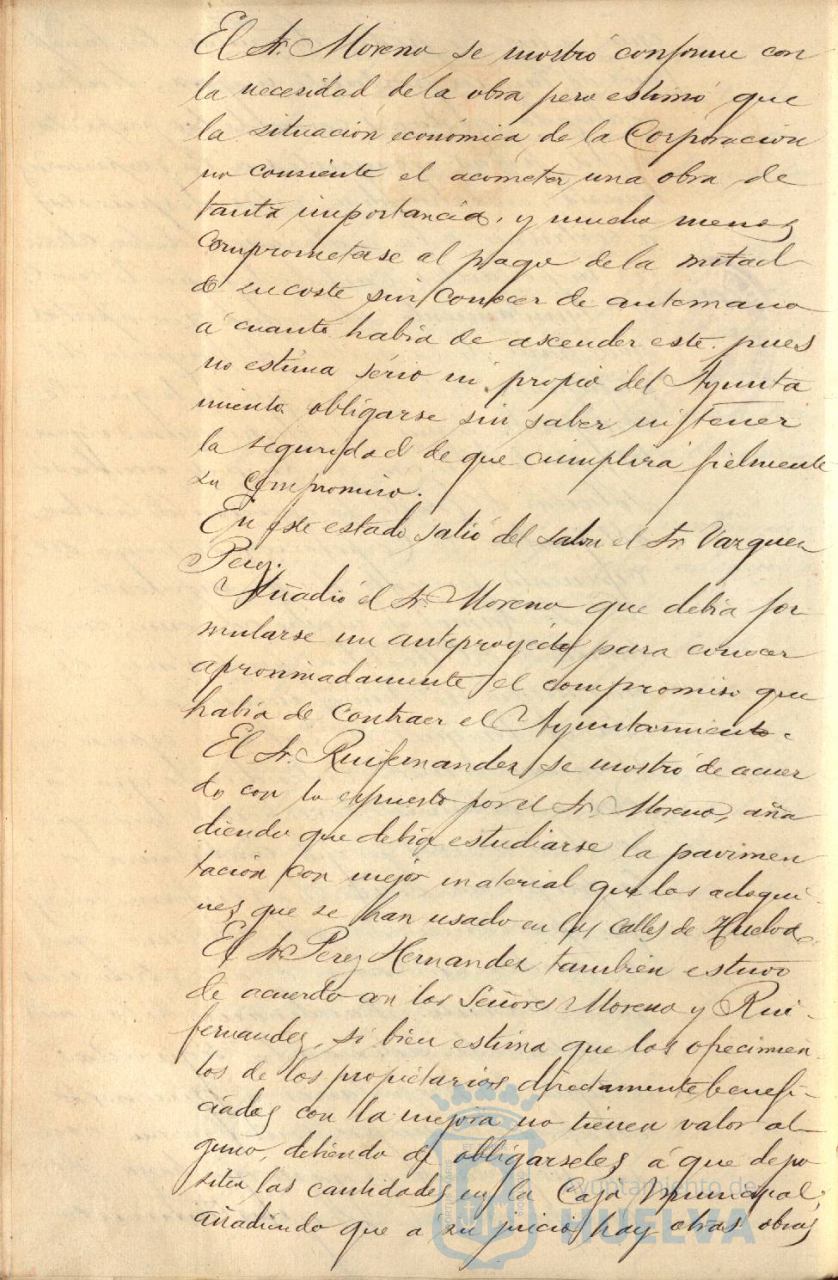 El Sr. Moreno se mostró conforme con
la necesidad de la obra pero estimó que
la situación económica de la Corporación
no consiente el acometer una obra de
tanta importancia, y mucho menos
comprometerse al pago de la mitad
de su coste sin conocer de antemano
á cuanto había de ascender este, pues
no estima sério ni propio del Ayunta
miento obligarse sin saber ni tener
la seguridad de que cumplirá fielmente
su compromiso.
En este estado salió del salon el Sr. Vazquez
Perez.
Añadió el Sr. Moreno que debia for
mularse un anteproyecto para conocer
aproximadamente el compromiso que
había de contraer el Ayuntamiento.
El Sr. Ruifernandez se mostró de acuer
do con lo expuesto por el Sr. Moreno, aña
diendo que debia estudiarse la pavimen
tación con mejor material que los adoqui
nes que se han usado en las calles de Huelva.
El Sr. Perez Hernandez también estuvo
de acuerdo con los Señores Moreno y Rui-
fernandez, si bien estima que los ofrecimien
tos de los propietarios directamente benefi-
ciados con la mejora no tienen valor al-
guno, debiendo de obligarseles á que depo
siten las cantidades en la Caja Municipal,
añadiendo que a su juicio hay otras obras
Ayuntamiento de
HUELVA